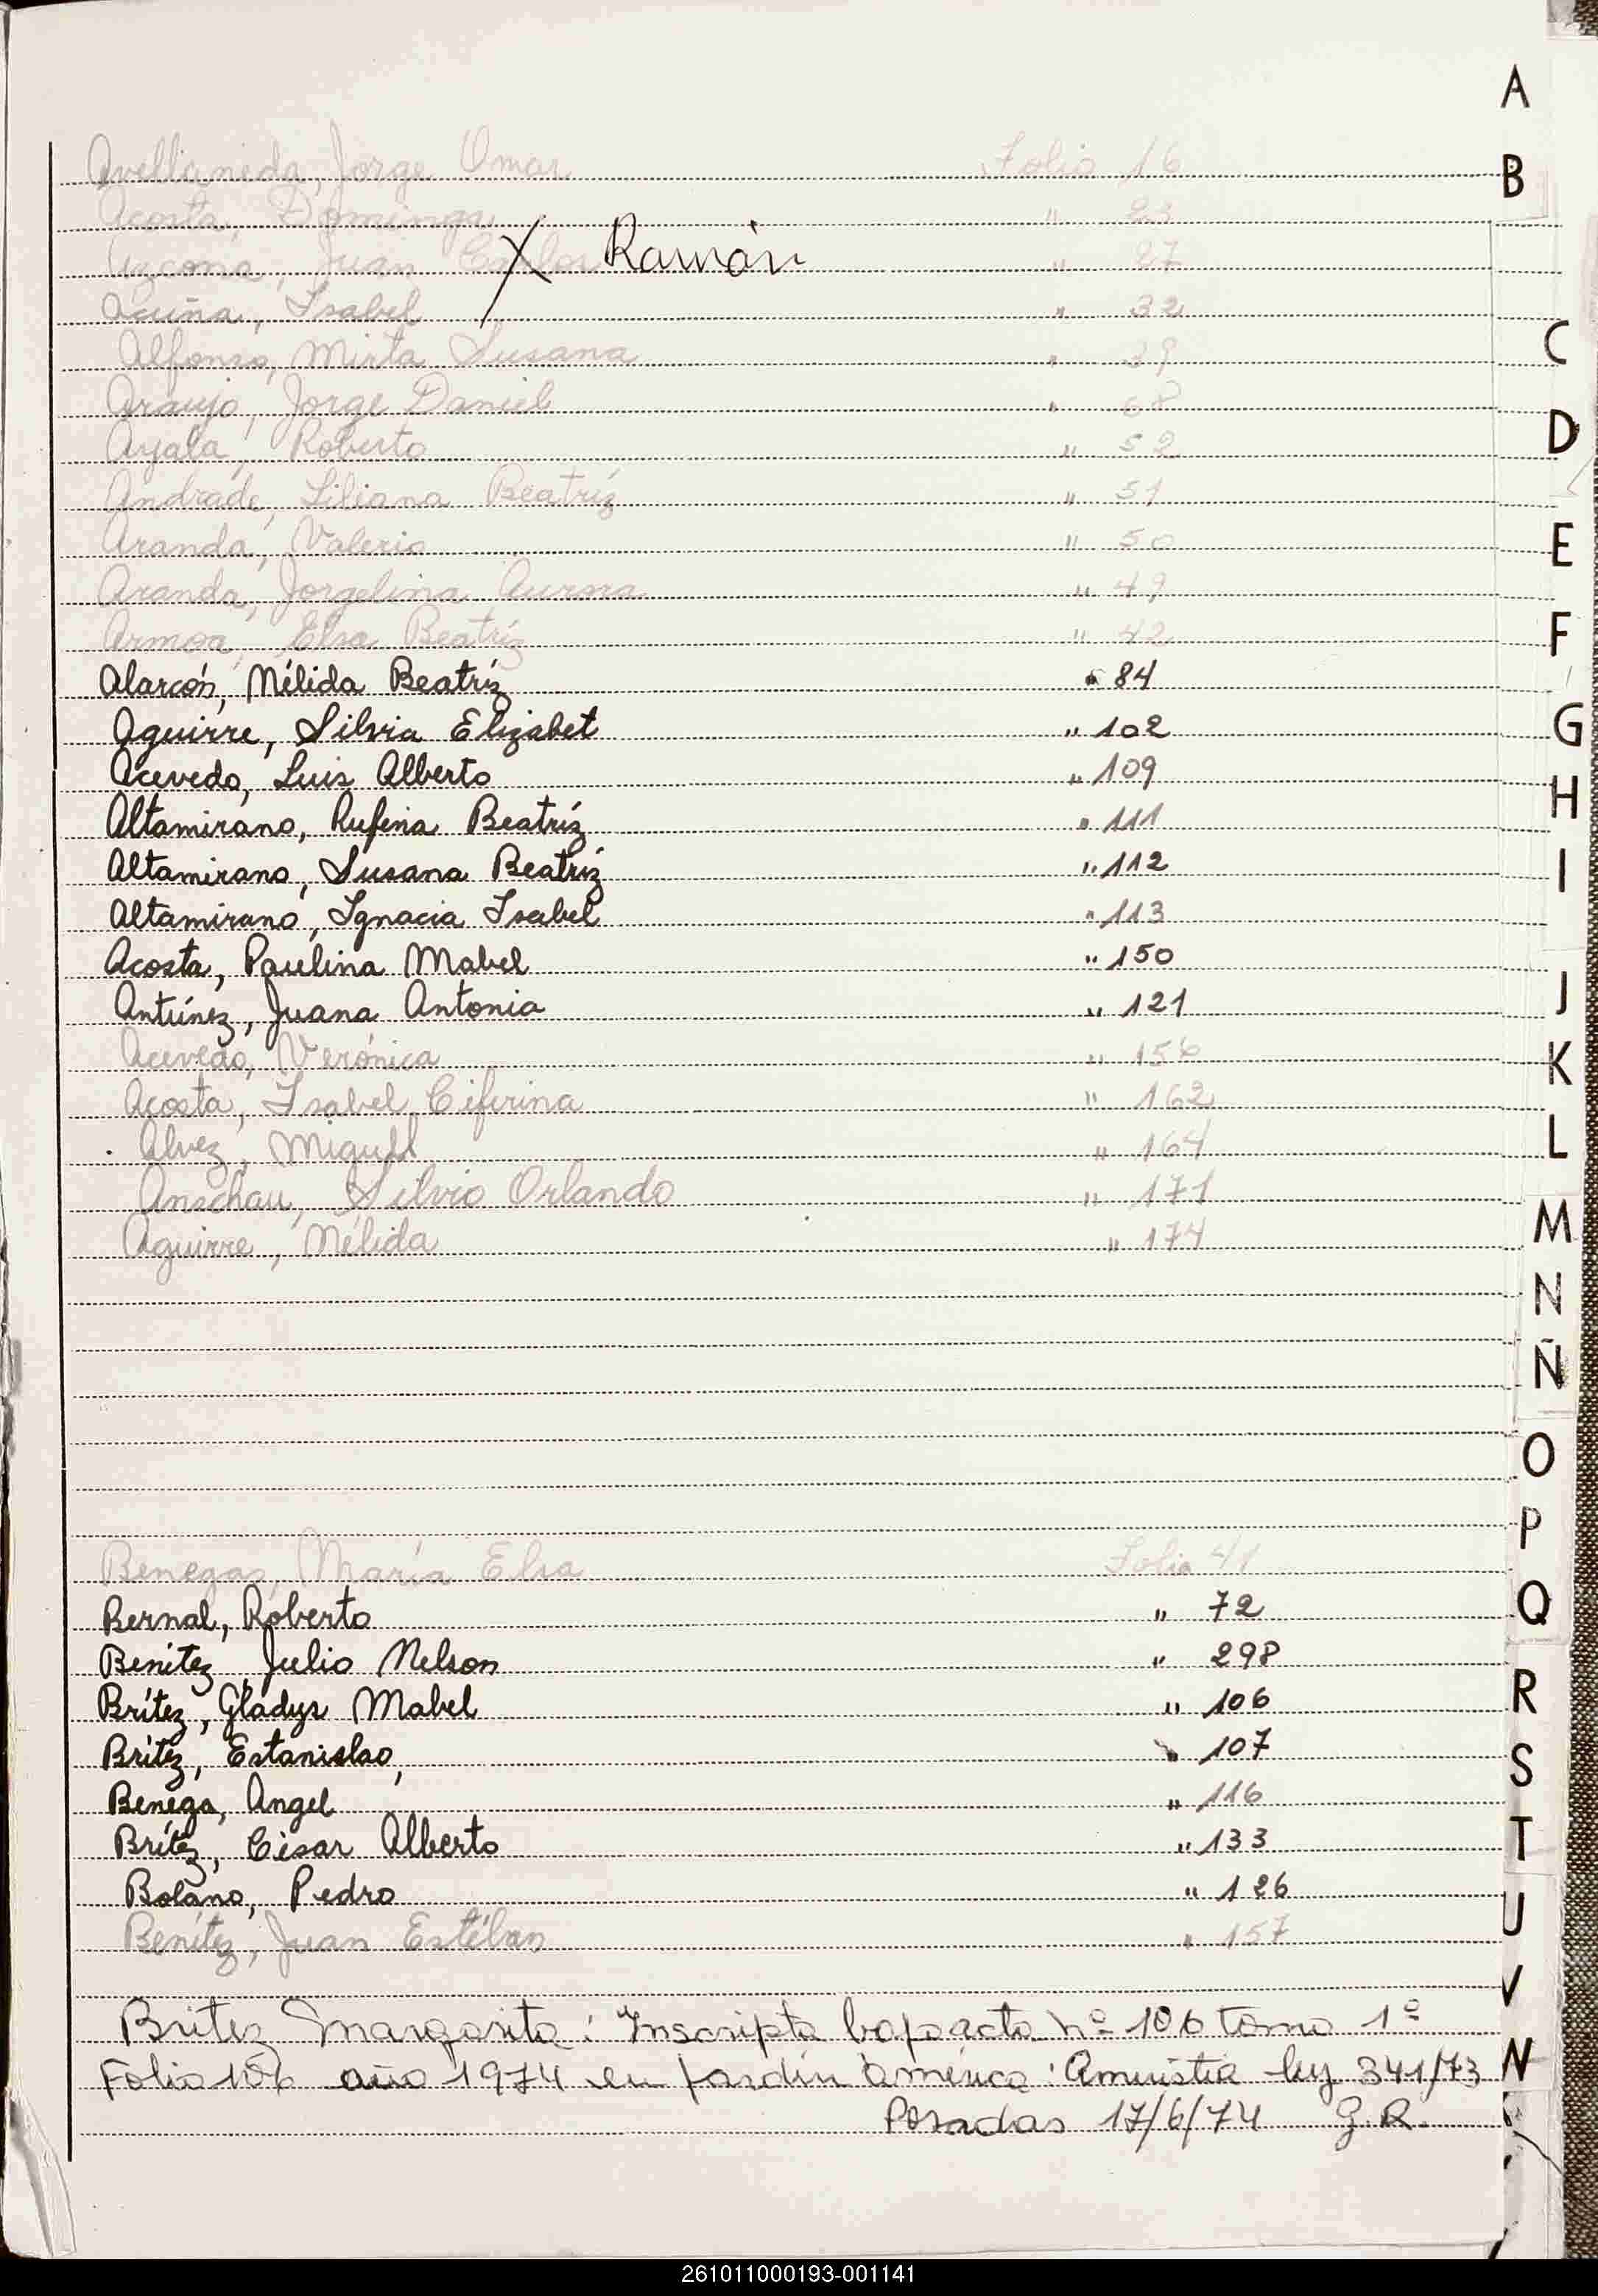 A
B
Avellaneda, Jorge Omar Folio 16
Acosta, Dominga " 23
Azcona, Juan Carlos X Ramón " 27
Acuña, Isabel " 32
C
Alfonso, Mirta Susana " 39
Araujo, Jorge Daniel " 68
D
Ayala, Roberto " 52
Andrade, Liliana Beatríz " 51
Aranda, Valerio " 50
E
Aranda, Jorgelina Aurora " 49
Armoa, Elsa Beatríz " 42
F
Alarcón, Nélida Beatríz " 84
Aguirre, Silvia Elizabet " 102
G
Acevedo, Luis Alberto " 109
H
Altamirano, Rufina Beatríz " 111
Altamirano, Susana Beatríz " 112
I
Altamirano, Ignacia Isabel " 113
Acosta, Paulina Mabel " 150
Antúnez, Juana Antonia " 121
J
Acevedo, Verónica " 156
K
Acosta, Isabel Ciferina " 162
Alvez, Miguel " 164
L
Anschau, Silvio Orlando " 171
Aguirre, Nélida " 174
M
N
Ñ
O
P
Benegas, María Elsa Folio 41
Bernal, Roberto " 72
Q
Benítez, Julio Nelson " 298
Brítez, Gladys Mabel " 106
R
Brítez, Estanislao, " 107
S
Benega, Angel " 116
Brítez, César Alberto " 133
T
Bolaño, Pedro " 126
U
Benítez, Juan Estéban " 157
V
Britez Margarita: Inscripta bajo acta Nº 106 tomo 1º
Folio 106 año 1974 en Jardín América: Amnistía ley 341/73
N
Posadas 17/6/74 G.R.
261011000193-001141